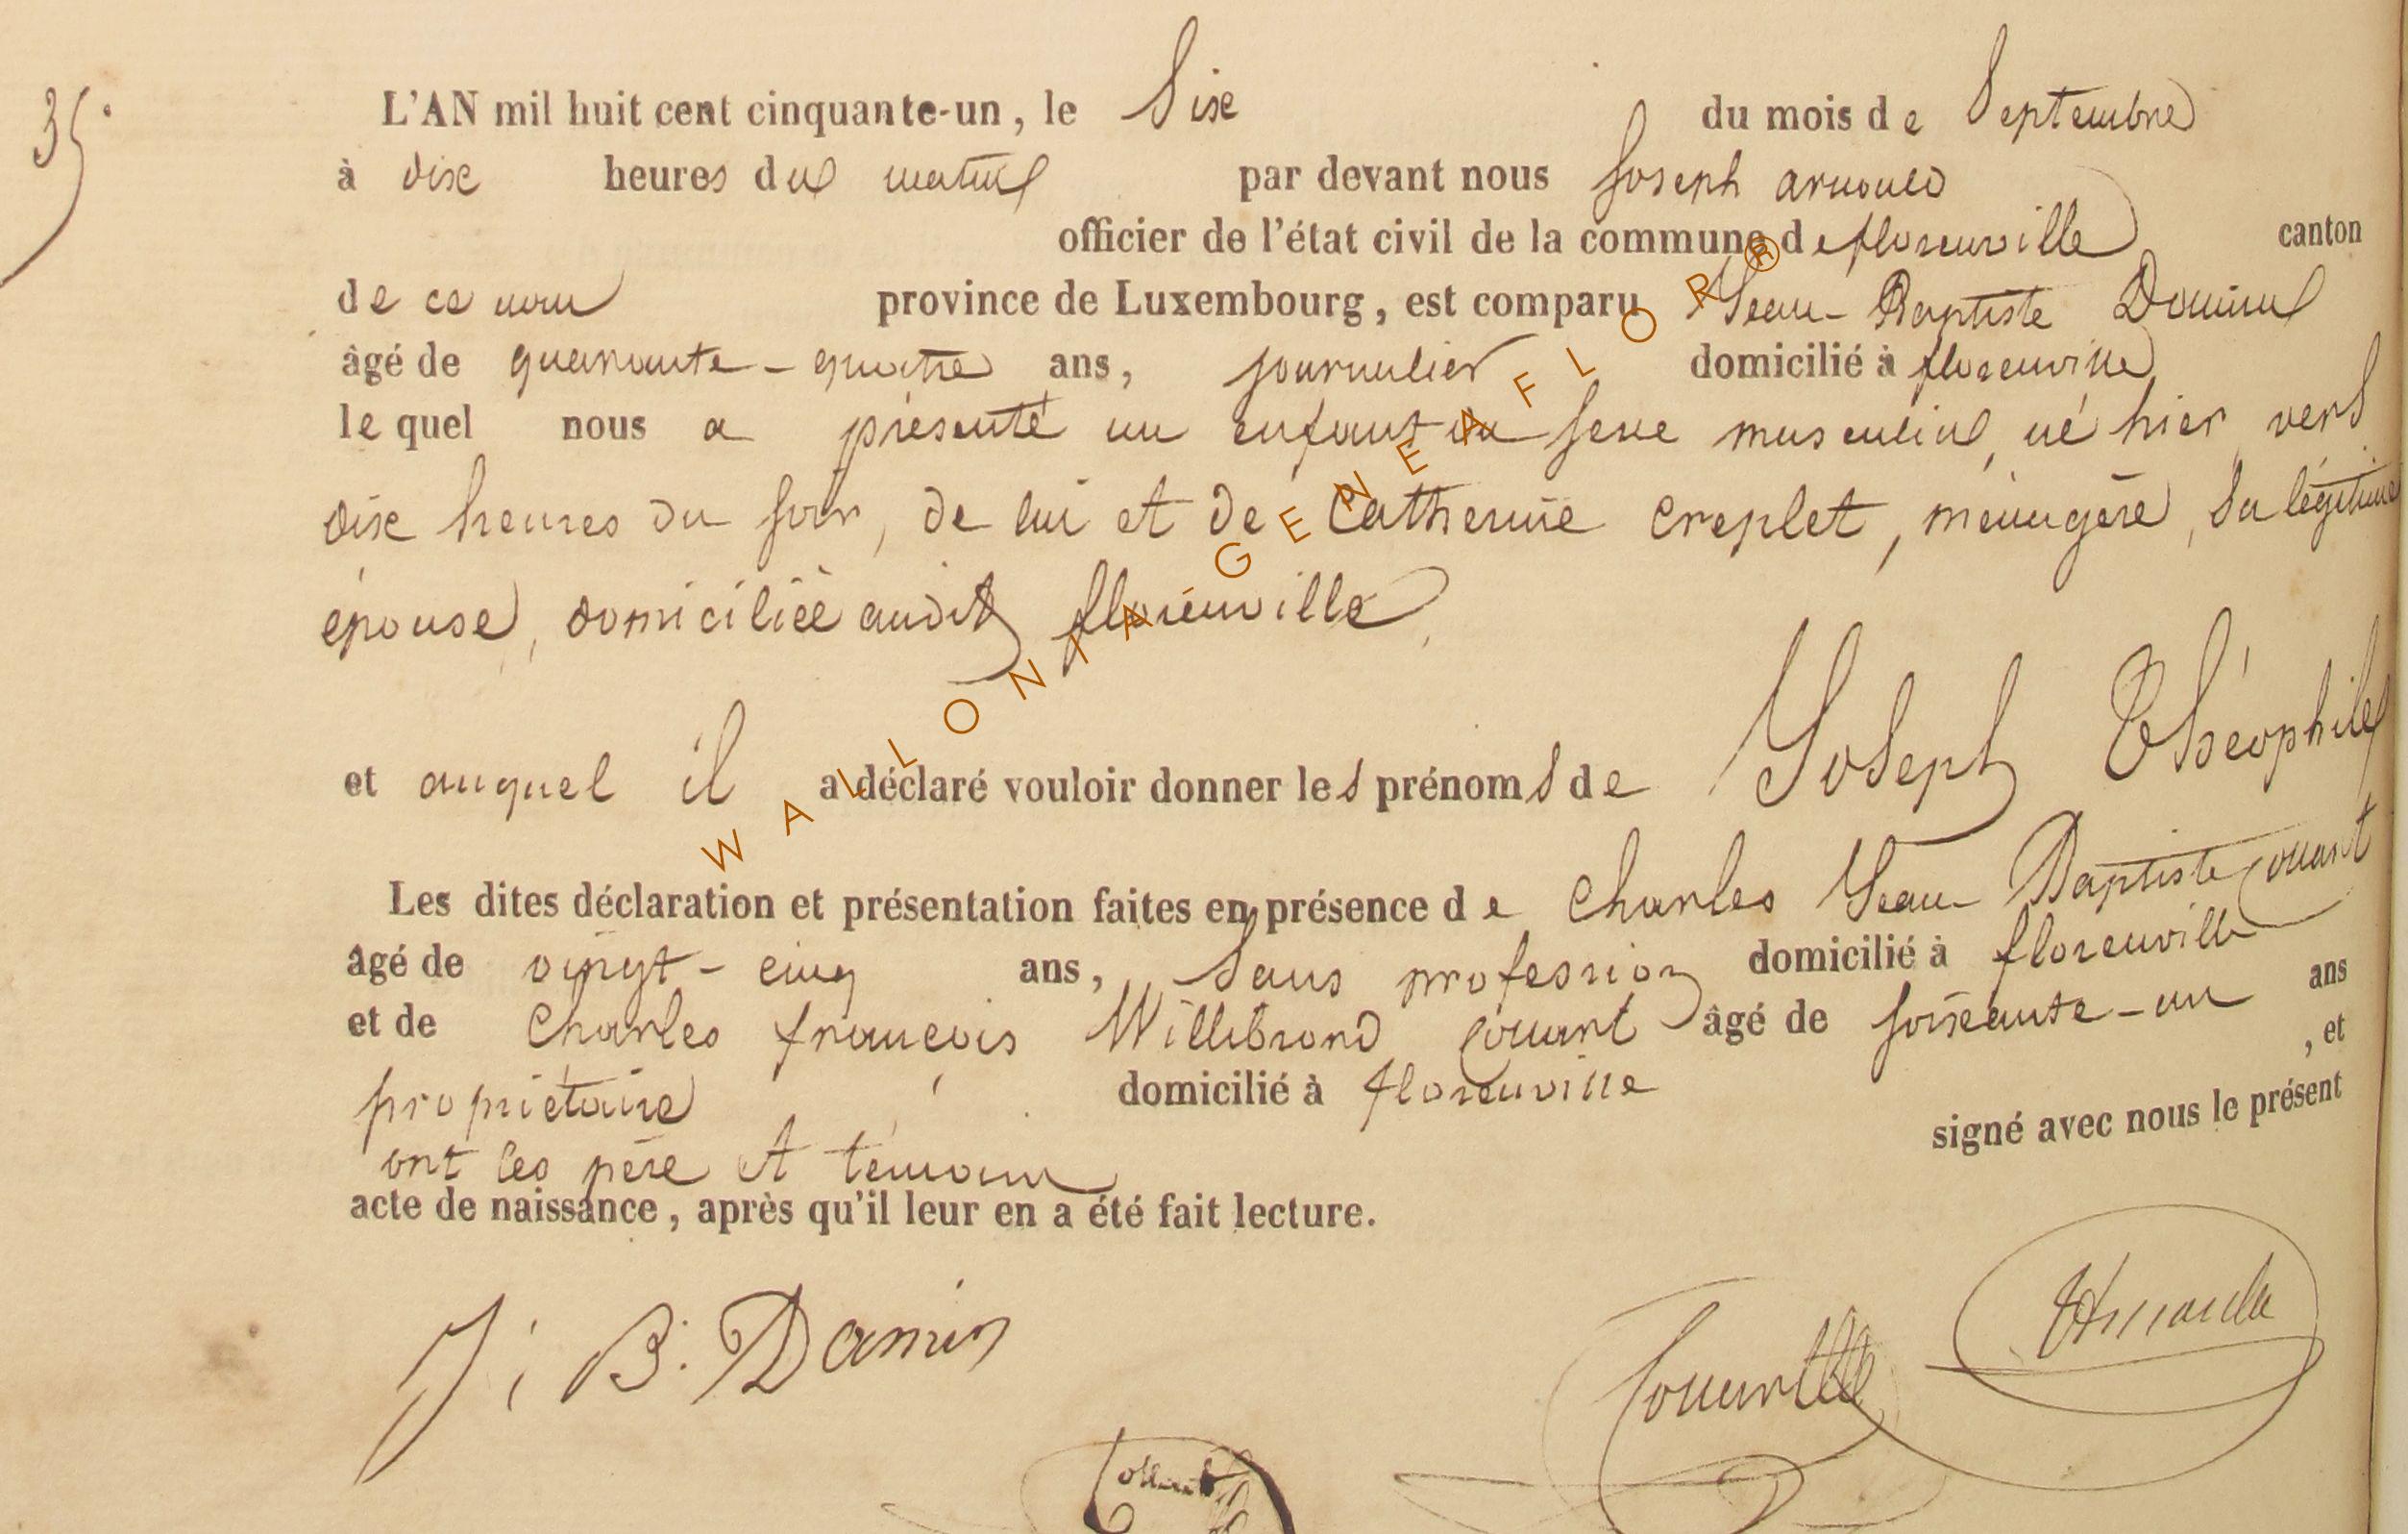 35.
L'AN mil huit cent cinquante-un, le Six du mois de Septembre
à dix heures du matin par devant nous Joseph arnould
officier de l'état civil de la commune de florenville canton
de ce nom province de Luxembourg, est comparu Jean-Baptiste Damin
âgé de quarante-quatre ans, journalier domicilié à florenville
le quel nous a présenté un enfant du sexe masculin, né hier vers
dix heures du soir, de lui et de Catherine Creplet, ménagère, sa légitime
épouse, domiciliée audit florenville,
et auquel il a déclaré vouloir donner les prénoms de Joseph Théophile
Les dites déclaration et présentation faites en présence de Charles Jean-Baptiste Couart
âgé de vingt-cinq ans, sans profession domicilié à florenville
et de Charles françois Willibrord Couart âgé de soixante-un ans
propriétaire domicilié à florenville, et
ont les père et témoin signé avec nous le présent
acte de naissance, après qu'il leur en a été fait lecture.
J. B. Damin
WALLONIA GENEAFLOR®